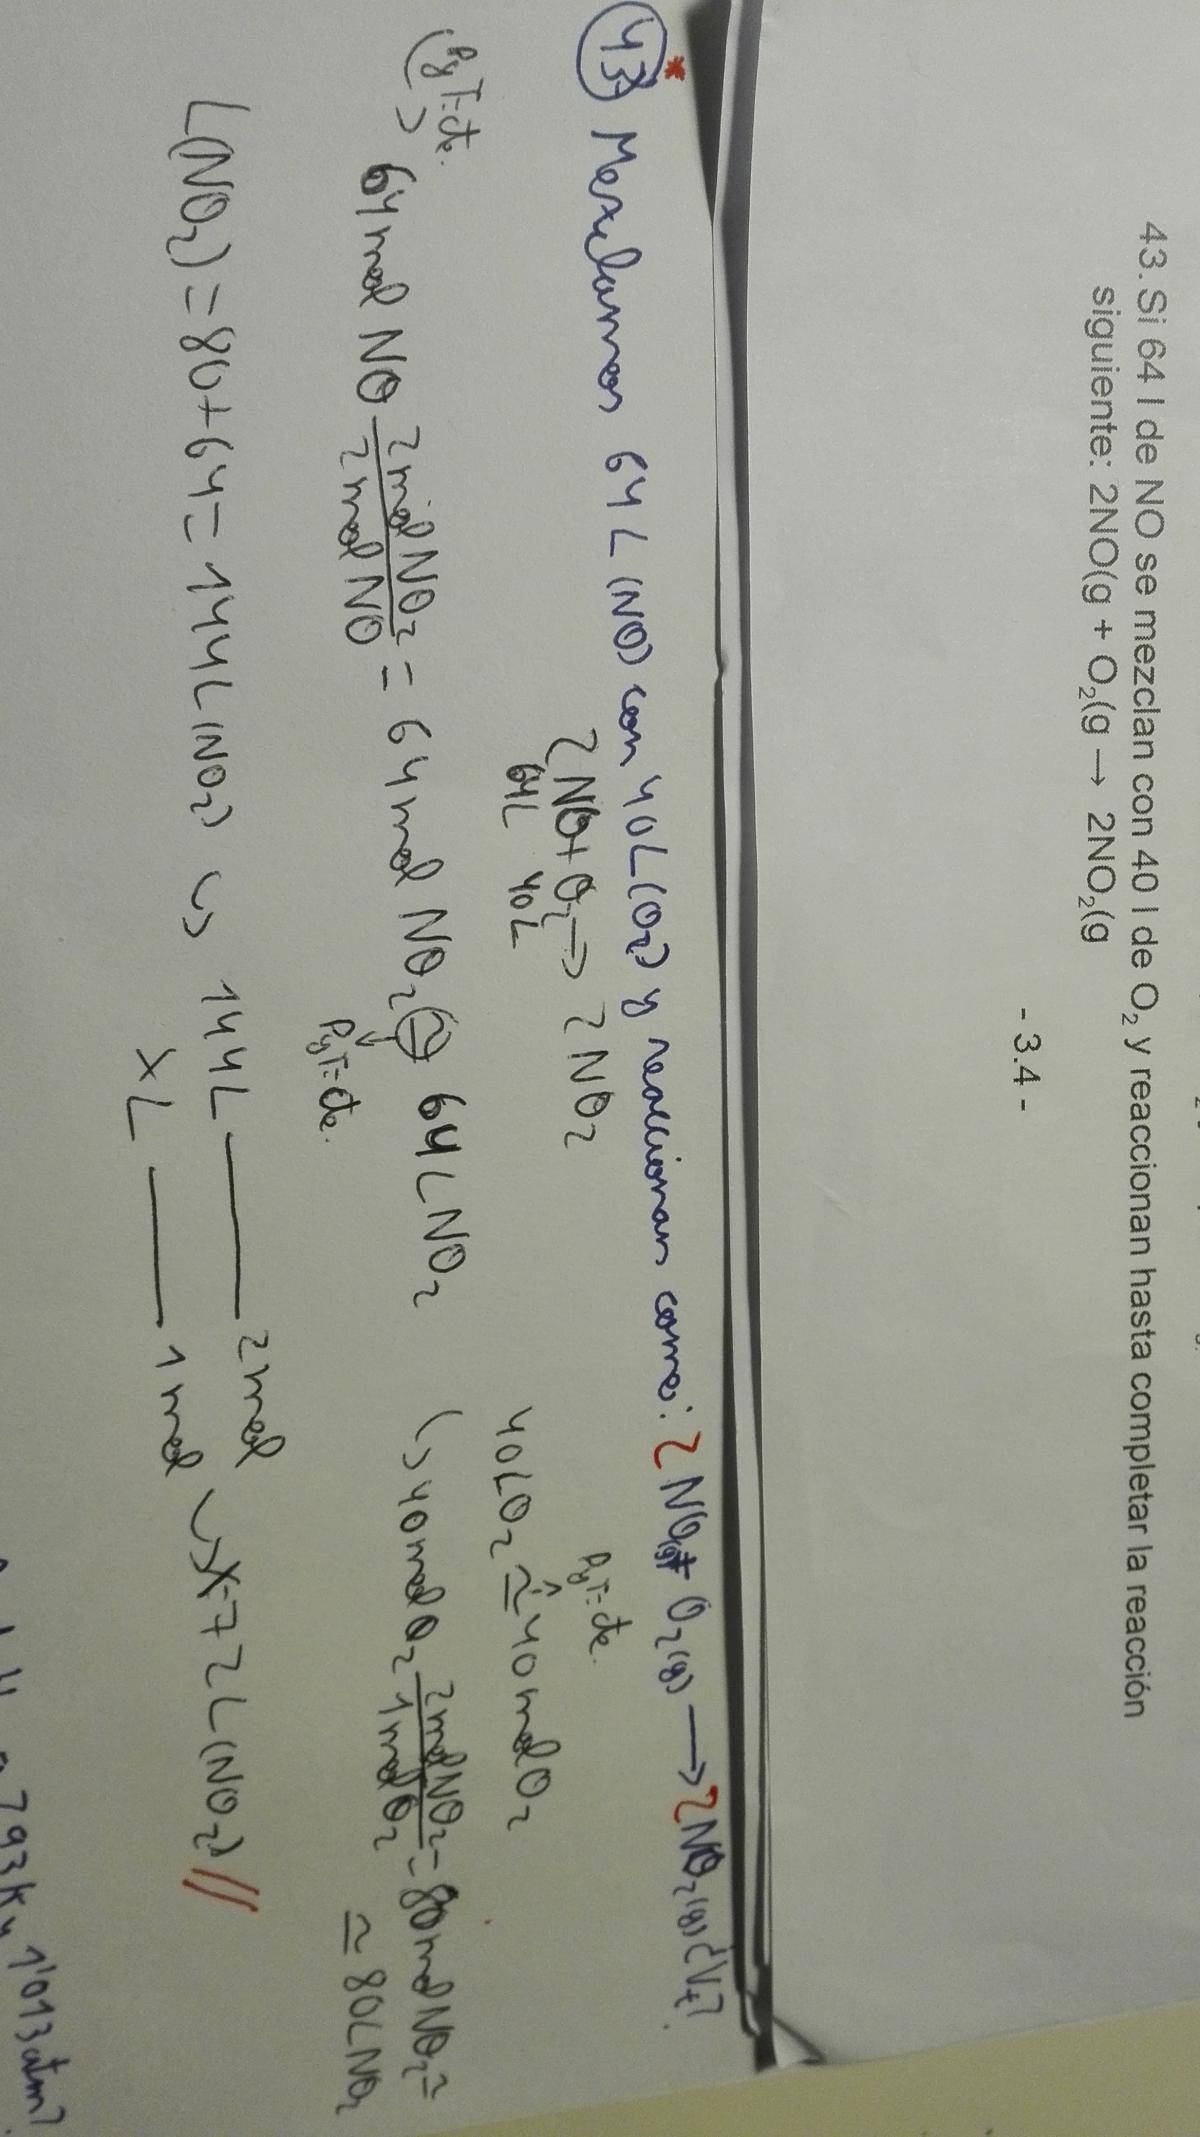 43. Si 64 l de NO se mezclan con 40 l de O₂ y reaccionan hasta completar la reacción
siguiente: 2NO(g + O₂(g → 2NO₂(g
- 3.4 -
* 43) Mezclamos 64L (NO) con 40L(O₂) y reaccionan como: 2NO(g)+ O₂(g) → 2NO₂(g) ¿V+?
2NO+O₂→ 2NO₂
64L 40L
PyT=cte.
40LO₂ ≃ 40molO₂
(PyT=cte.
↪ 64mol NO 2mol NO₂/2mol NO = 64mol NO₂ ≃ 64LNO₂
PyT=cte.
↪ 40molO₂ 2molNO₂/1molO₂ = 80molNO₂ ≃
≃ 80LNO₂
L(NO₂) = 80+64= 144L(NO₂) ↪ 144L — 2mol
xL — 1mol ↪ x=72L(NO₂)//
793K y 1'013atm?